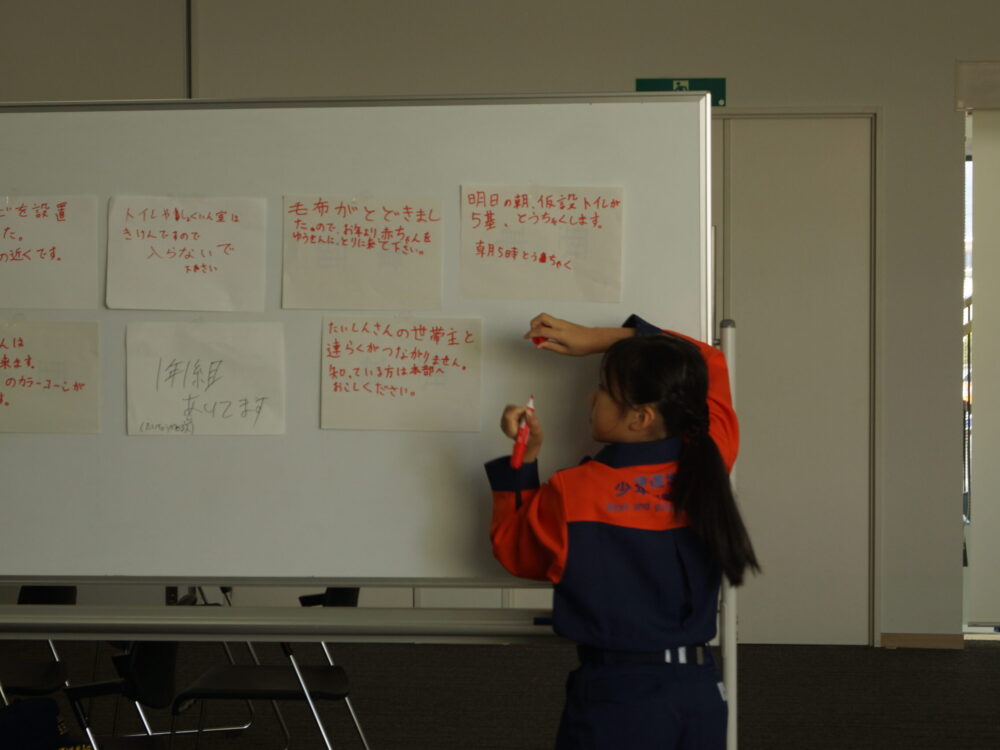 ビを設置
た。
の近くです。
トイレや
室は
きけんですので
入らないで
下さい
毛布がとどきまし
た。ので、お年より、赤ちゃんを
ゆうせんに、とりに来て下さい。
明日の朝、仮設トイレが
5基、とうちゃくします。
ちゃく
んは
来ます。
のカラーコーンが
す。
1年1組
あいてます
たいしんさんの世帯主と
連らくがつながりません。
知っている方は本部へ
おこしください。
少年消